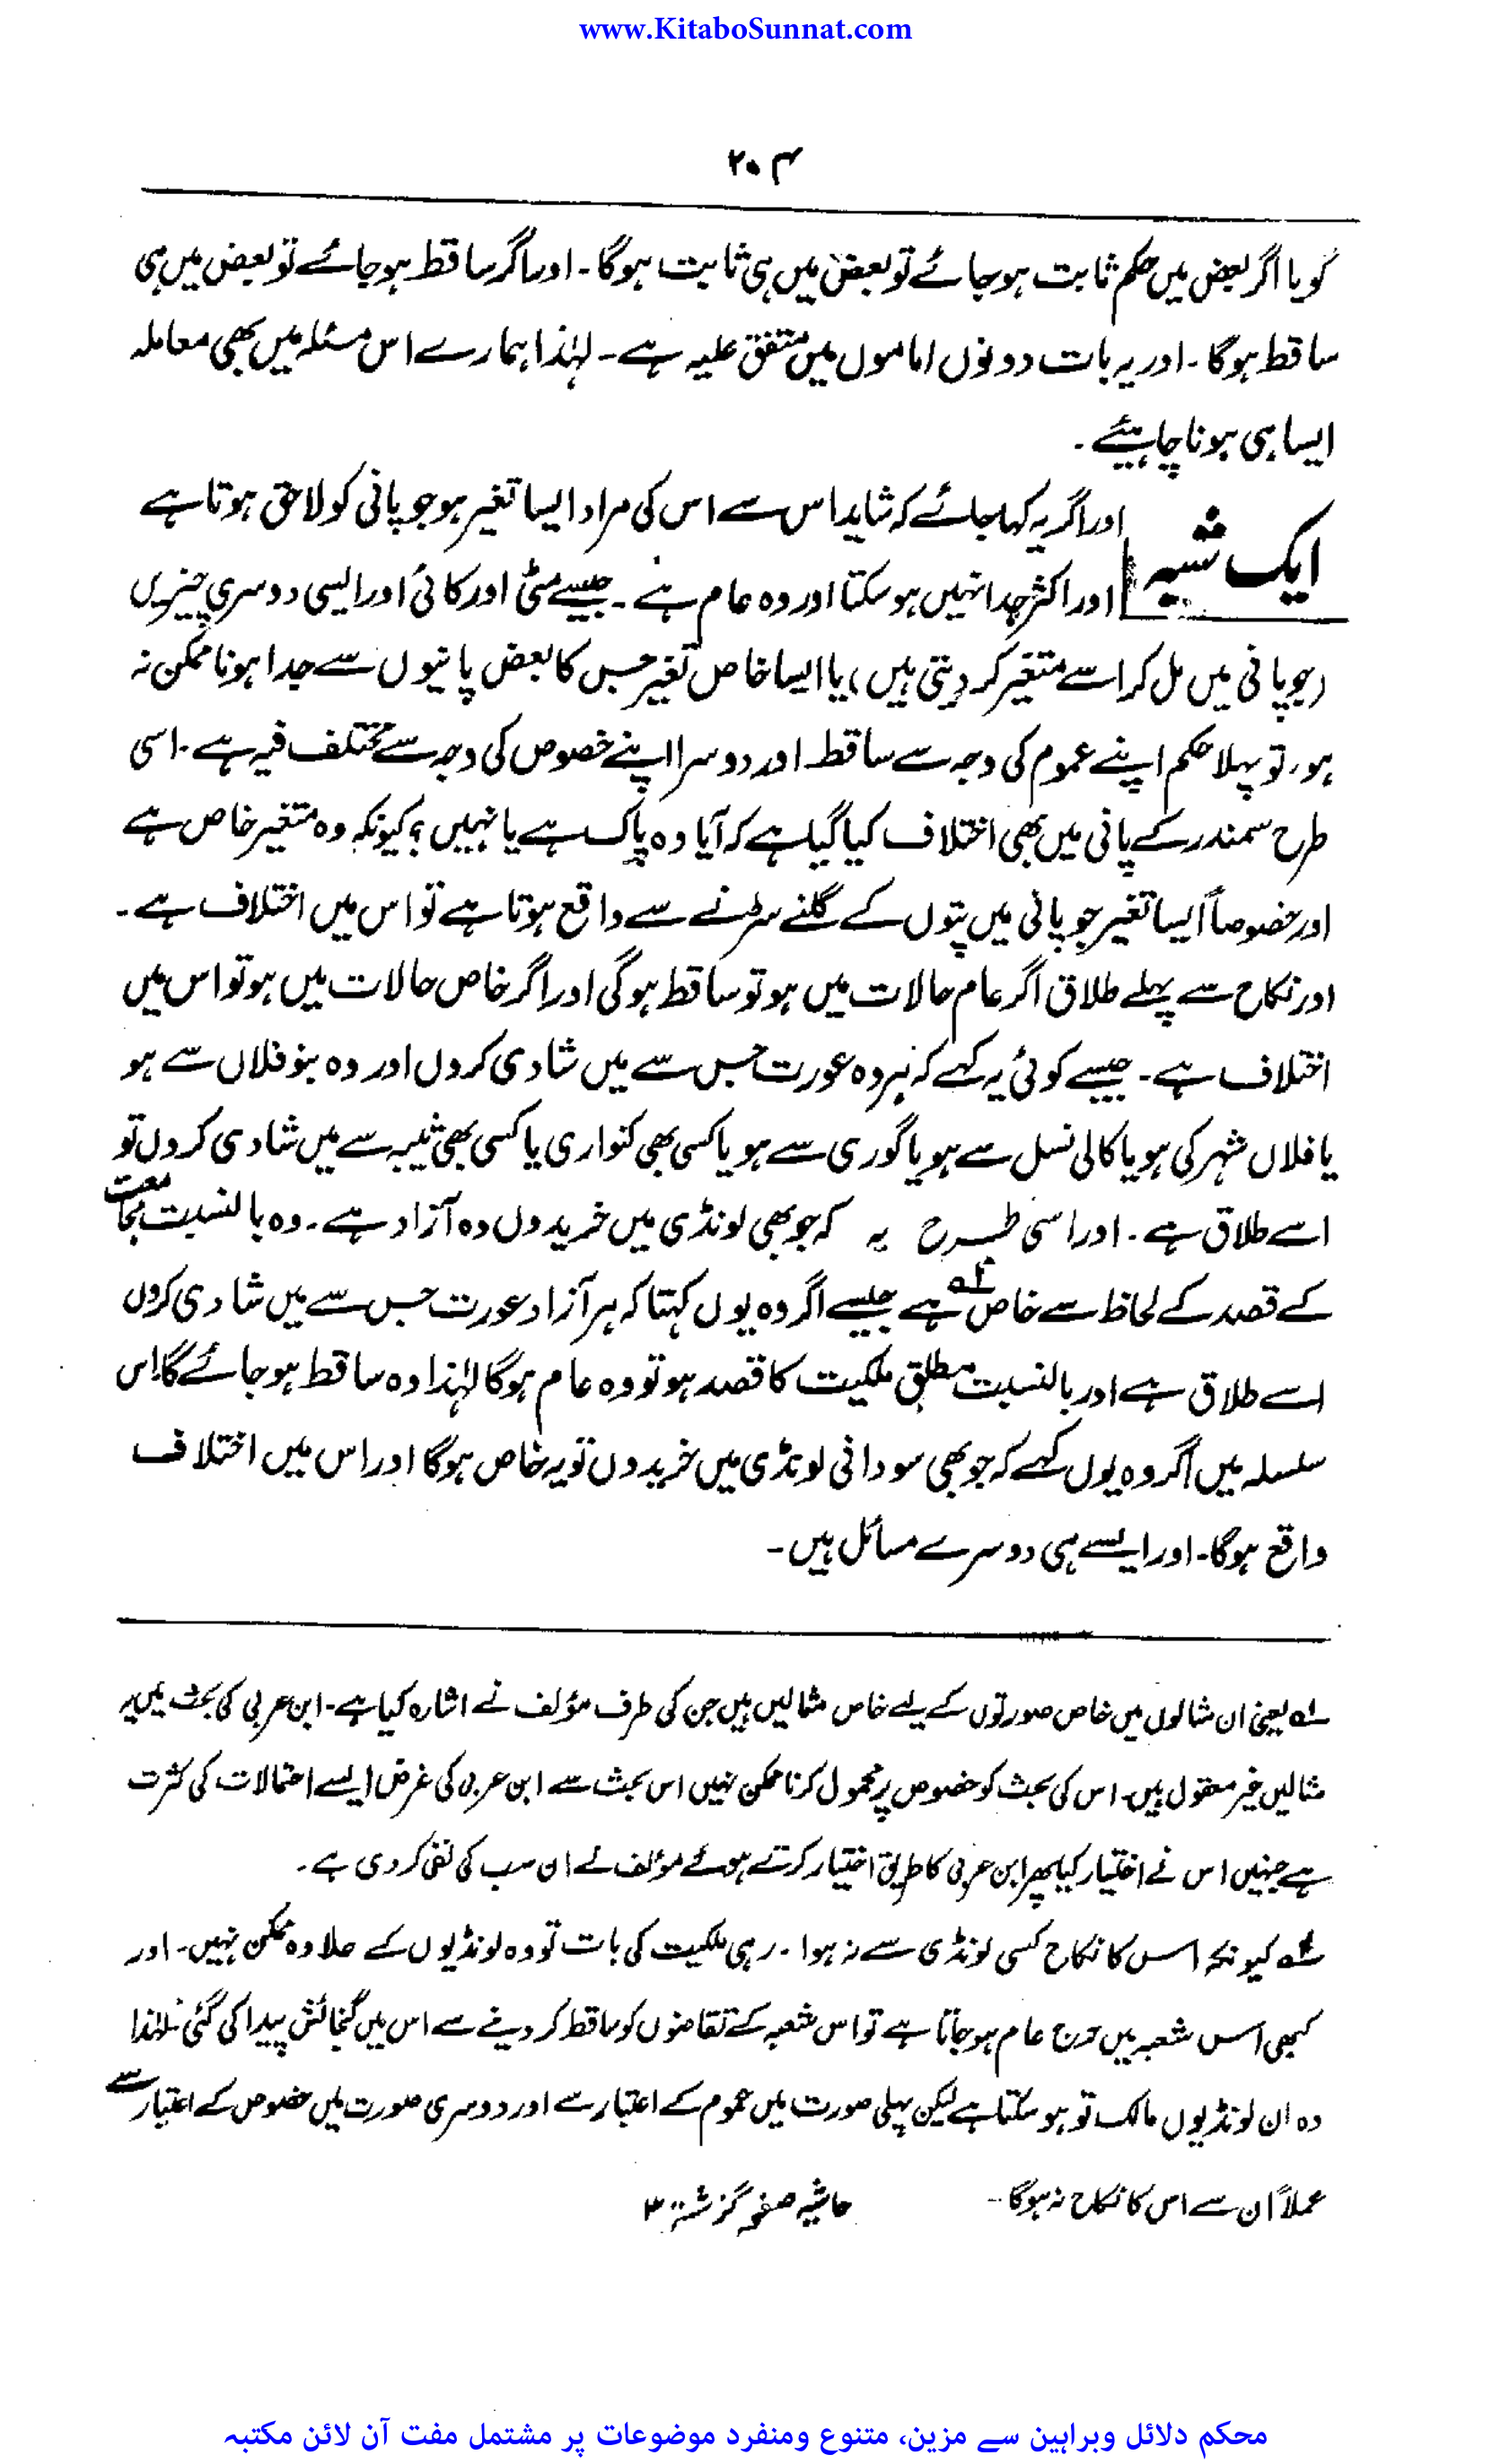 www.KitaboSunnat.com
۲۰۴
گویا اگر بعض میں حکم ثابت ہو جائے تو بعض میں ہی ثابت ہو گا۔ اور اگر ساقط ہو جائے تو بعض میں ہی
ساقط ہو گا۔ اور یہ بات دونوں اماموں میں متفق علیہ ہے۔ لہٰذا ہمارے اس مسئلہ میں بھی معاملہ
ایسا ہی ہونا چاہیئے۔
ایک شبہ
اور اگر یہ کہا جائے کہ شاید اس سے اس کی مراد ایسا تغیر ہو جو پانی کو لاحق ہوتا ہے
اور اکثر جدا نہیں ہو سکتا اور وہ عام ہے۔ جیسے مٹی اور کائی اور ایسی دوسری چیزیں
(جو پانی میں مل کر اسے متغیر کر دیتی ہیں) یا ایسا خاص تغیر جس کا بعض پانیوں سے جدا ہونا ممکن نہ
ہو، تو پہلا حکم اپنے عموم کی وجہ سے ساقط اور دوسرا اپنے خصوص کی وجہ سے مختلف فیہ ہے۔ اسی
طرح سمندر کے پانی میں بھی اختلاف کیا گیا ہے کہ آیا وہ پاک ہے یا نہیں؟ کیونکہ وہ متغیر خاص ہے
اور خصوصاً ایسا تغیر جو پانی میں پتوں کے گلنے سڑنے سے واقع ہوتا ہے تو اس میں اختلاف ہے۔
اور نکاح سے پہلے طلاق اگر عام حالات میں ہو تو ساقط ہو گی اور اگر خاص حالات میں ہو تو اس میں
اختلاف ہے۔ جیسے کوئی یہ کہے کہ ہر وہ عورت جس سے میں شادی کروں اور وہ بنو فلاں سے ہو
یا فلاں شہر کی ہو یا کالی نسل سے ہو یا گوری سے ہو یا کسی بھی کنواری یا کسی بھی ثیبہ سے میں شادی کروں تو
اسے طلاق ہے۔ اور اسی طرح یہ کہ جو بھی لونڈی میں خریدوں وہ آزاد ہے۔ وہ بالنسبت مجامعت
کے قصد کے لحاظ سے خاص ہے جیسے اگر وہ یوں کہتا کہ ہر آزاد عورت جس سے میں شادی کروں
اسے طلاق ہے اور بالنسبت مطلق ملکیت کا قصد ہو تو وہ عام ہو گا لہٰذا وہ ساقط ہو جائے گا۔ اس
سلسلہ میں اگر وہ یوں کہے کہ جو بھی سوڈانی لونڈی میں خریدوں تو یہ خاص ہو گا اور اس میں اختلاف
واقع ہو گا۔ اور ایسے ہی دوسرے مسائل ہیں۔
۱ یعنی ان مثالوں میں خاص صورتوں کے لیے خاص مثالیں ہیں جن کی طرف مؤلف نے اشارہ کیا ہے۔ ابن عربی کی بحث میں یہ
مثالیں غیر معقول ہیں۔ اس کی بحث کو خصوص پر محمول کرنا ممکن نہیں اس بحث سے ابن عربی کی غرض ایسے احتمالات کی کثرت
ہے جنہیں اس نے اختیار کیا پھر ابن عربی کا طریق اختیار کرتے ہوئے مؤلف نے ان سب کی نفی کر دی ہے۔
۲ کیونکہ اس کا نکاح کسی لونڈی سے نہ ہوا۔ رہی ملکیت کی بات تو وہ لونڈیوں کے علاوہ ممکن نہیں۔ اور
کبھی اس شعبہ میں حرج عام ہو جاتا ہے تو اس شعبہ کے تقاضوں کو ساقط کر دینے سے اس میں گنجائش پیدا کی گئی۔ لہٰذا
وہ ان لونڈیوں مالک تو ہو سکتا ہے لیکن پہلی صورت میں عموم کے اعتبار سے اور دوسری صورت میں خصوص کے اعتبار سے
عملاً ان سے اس کا نکاح نہ ہو گا۔ حاشیہ صفحہ گزشتہ ۳
محکم دلائل وبراہین سے مزین، متنوع ومنفرد موضوعات پر مشتمل مفت آن لائن مکتبہ